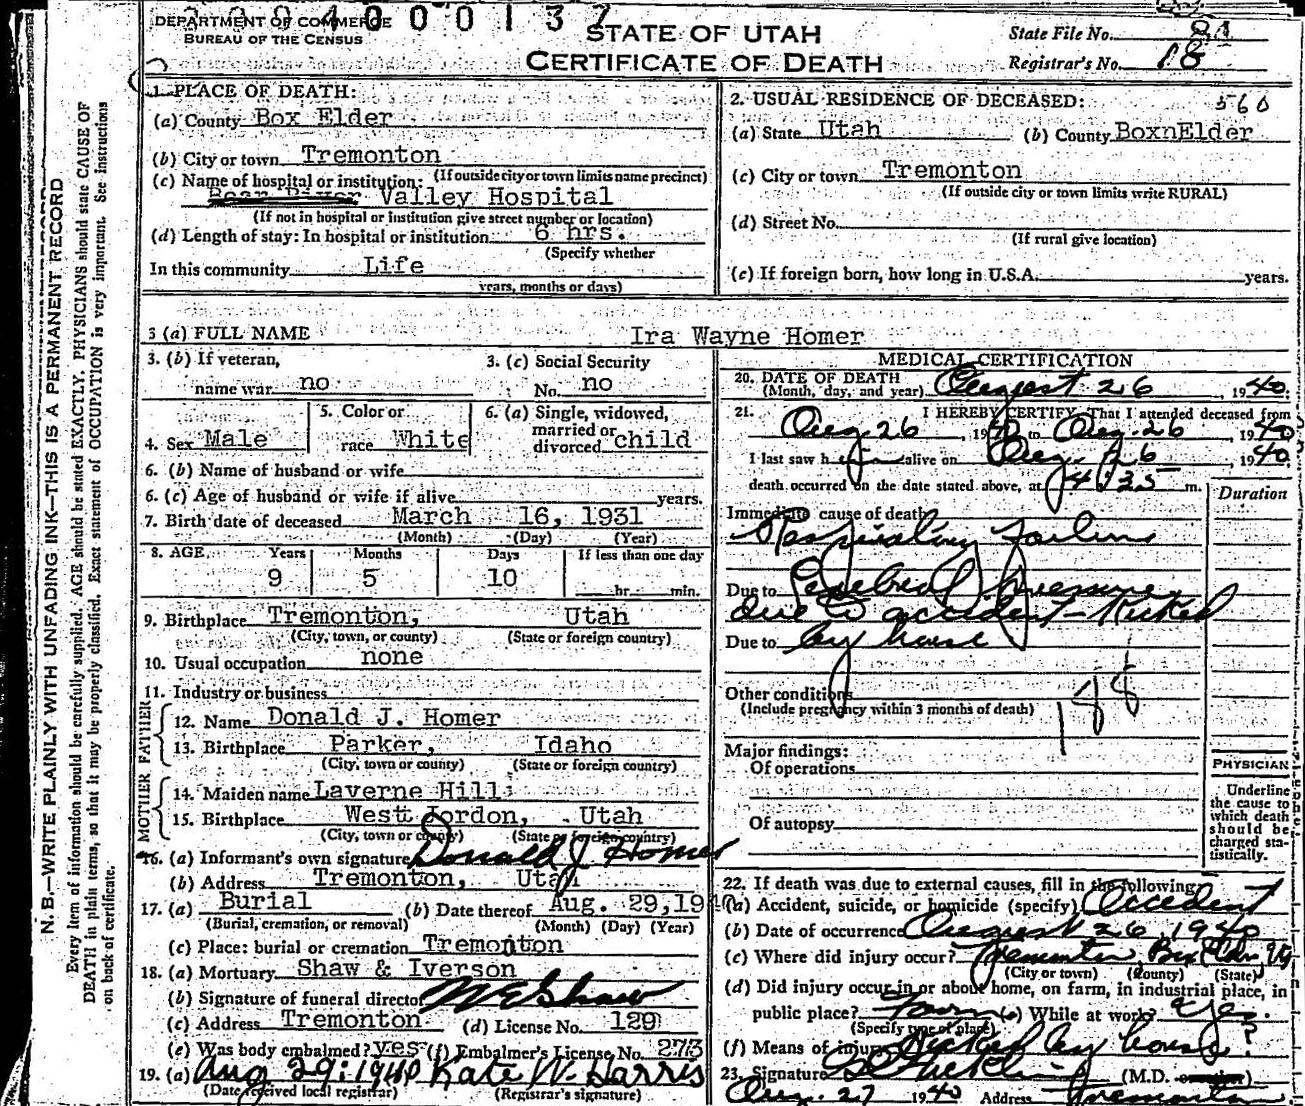 2 0 0 4 0 0 0 1 3 7
DEPARTMENT OF COMMERCE
BUREAU OF THE CENSUS
STATE OF UTAH
CERTIFICATE OF DEATH
State File No. 81
Registrar's No. 18
560
N. B.—WRITE PLAINLY WITH UNFADING INK—THIS IS A PERMANENT RECORD
Every item of information should be carefully supplied. AGE should be stated EXACTLY. PHYSICIANS should state CAUSE OF
DEATH in plain terms, so that it may be properly classified. Exact statement of OCCUPATION is very important. See instructions
on back of certificate.
1. PLACE OF DEATH:
(a) County Box Elder
(b) City or town Tremonton
(If outside city or town limits name precinct)
(c) Name of hospital or institution:
Bear River Valley Hospital
(If not in hospital or institution give street number or location)
(d) Length of stay: In hospital or institution 6 hrs.
(Specify whether
In this community Life
years, months or days)
2. USUAL RESIDENCE OF DECEASED:
(a) State Utah (b) County BoxnElder
(c) City or town Tremonton
(If outside city or town limits write RURAL)
(d) Street No.
(If rural give location)
(e) If foreign born, how long in U.S.A. years.
3 (a) FULL NAME Ira Wayne Homer
3. (b) If veteran,
name war no
3. (c) Social Security
No. no
4. Sex Male
5. Color or
race White
6. (a) Single, widowed,
married or
divorced child
6. (b) Name of husband or wife
6. (c) Age of husband or wife if alive years.
7. Birth date of deceased March 16, 1931
(Month) (Day) (Year)
8. AGE Years Months Days If less than one day
9 5 10 hr. min.
9. Birthplace Tremonton, Utah
(City, town, or county) (State or foreign country)
10. Usual occupation none
11. Industry or business
FATHER
12. Name Donald J. Homer
13. Birthplace Parker, Idaho
(City, town or county) (State or foreign country)
MOTHER
14. Maiden name Laverne Hill
15. Birthplace West Jordon, Utah
(City, town or county) (State or foreign country)
16. (a) Informant's own signature Donald J Homer
(b) Address Tremonton, Utah
17. (a) Burial (b) Date thereof Aug. 29, 1940
(Burial, cremation, or removal) (Month) (Day) (Year)
(c) Place: burial or cremation Tremonton
18. (a) Mortuary Shaw & Iverson
(b) Signature of funeral director M E Shaw
(c) Address Tremonton (d) License No. 129
(e) Was body embalmed? yes (f) Embalmer's License No. 273
19. (a) Aug 29: 1940 Kate W. Harris
(Date received local registrar) (Registrar's signature)
MEDICAL CERTIFICATION
20. DATE OF DEATH
(Month, day, and year) August 26, 1940.
21. I HEREBY CERTIFY, That I attended deceased from
Aug. 26, 1940 to Aug. 26 1940
I last saw him alive on Aug. 26, 1940.
death occurred on the date stated above, at 4:35 m.
Duration
Immediate cause of death
Respiratory Failure
Due to Cerebral Pressure
due to accident - Kicked
Due to by horse
Other conditions
(Include pregnancy within 3 months of death)
Major findings:
Of operations
Of autopsy
PHYSICIAN
Underline
the cause to
which death
should be
charged sta-
tistically.
22. If death was due to external causes, fill in the following:
(a) Accident, suicide, or homicide (specify) Accident
(b) Date of occurrence August 26, 1940
(c) Where did injury occur? Tremonton Box Elder
(City or town) (County) (State)
(d) Did injury occur in or about home, on farm, in industrial place, in
public place? Farm (e) While at work? Yes.
(Specify type of place)
(f) Means of injury Kicked by horse ?
23. Signature (M.D.
Aug. 27 1940 Address Tremonton